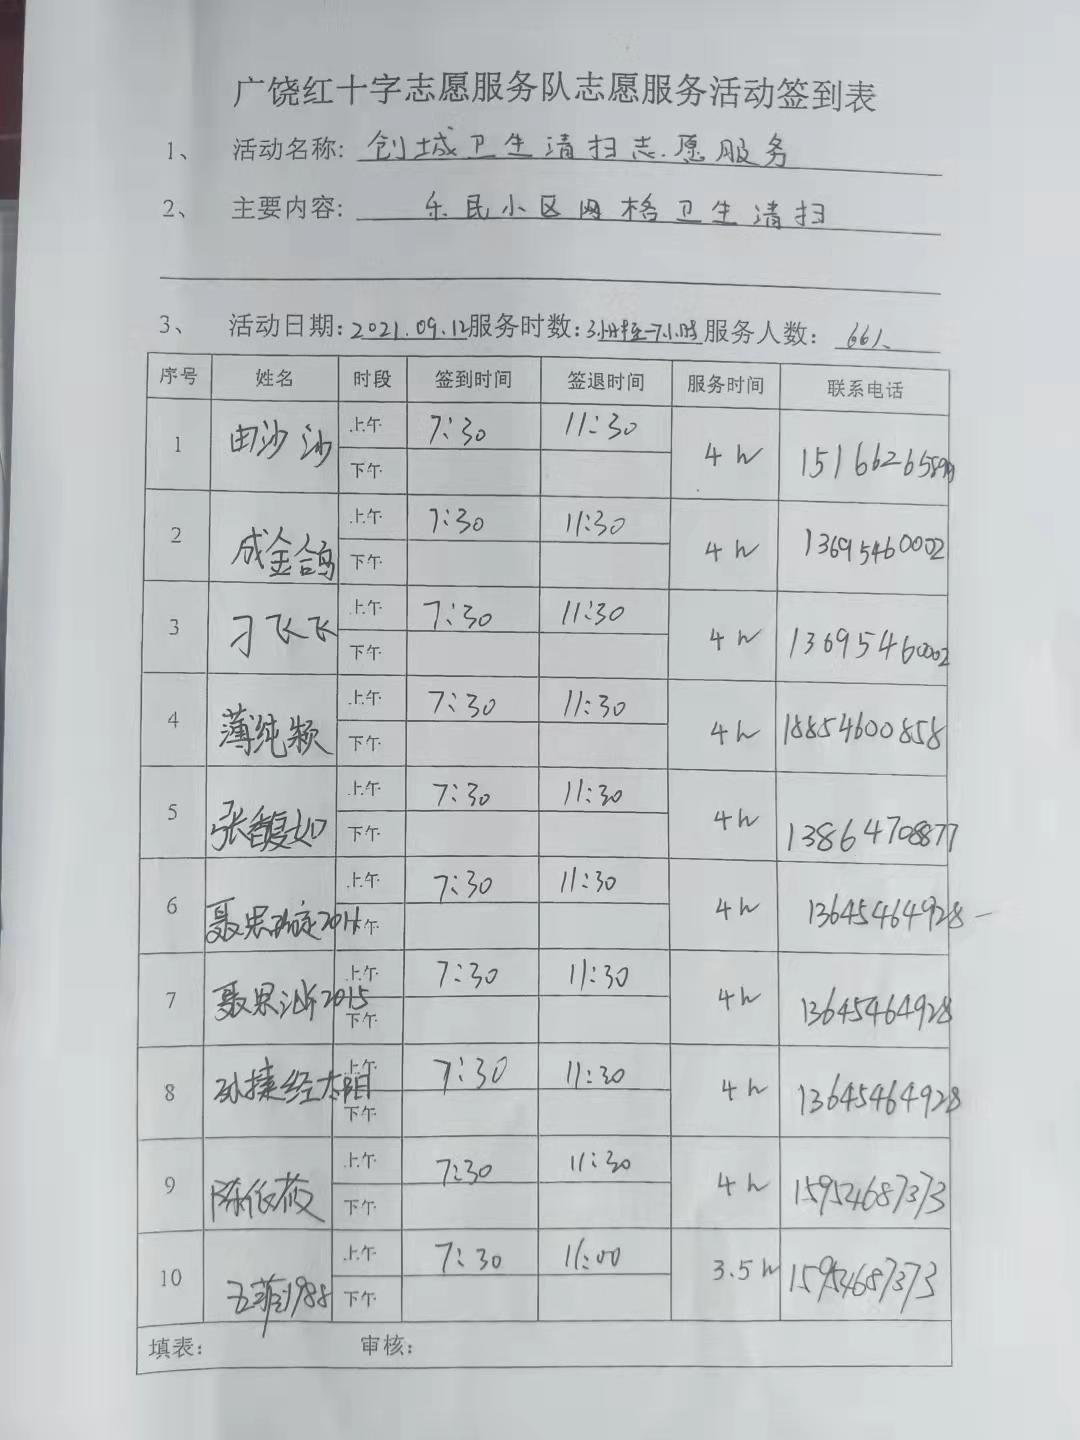 广饶红十字志愿服务队志愿服务活动签到表
1、 活动名称: 创城卫生清扫志愿服务
2、 主要内容: 乐民小区网格卫生清扫
3、 活动日期: 2021.09.12 服务时数: 3小时至7小时 服务人数: 66人
序号 姓名 时段 签到时间 签退时间 服务时间 联系电话
1 由沙沙 上午 7:30 11:30 4h
下午
2 成金鸽 上午 7:30 11:30 4h 13695460002
下午
3 刁飞飞 上午 7:30 11:30 4h 13695460002
下午
4 薄纯颖 上午 7:30 11:30 4h 18854600858
下午
5 张馥如 上午 7:30 11:30 4h 13864708877
下午
6 上午 7:30 11:30 4h 13645464928
下午
7 2015 上午 7:30 11:30 4h 13645464928
下午
8 上午 7:30 11:30 4h 13645464928
下午
9 上午 7:30 11:30 4h 15954687373
下午
10 1988 上午 7:30 11:00 3.5h 15954687373
下午
填表: 审核: